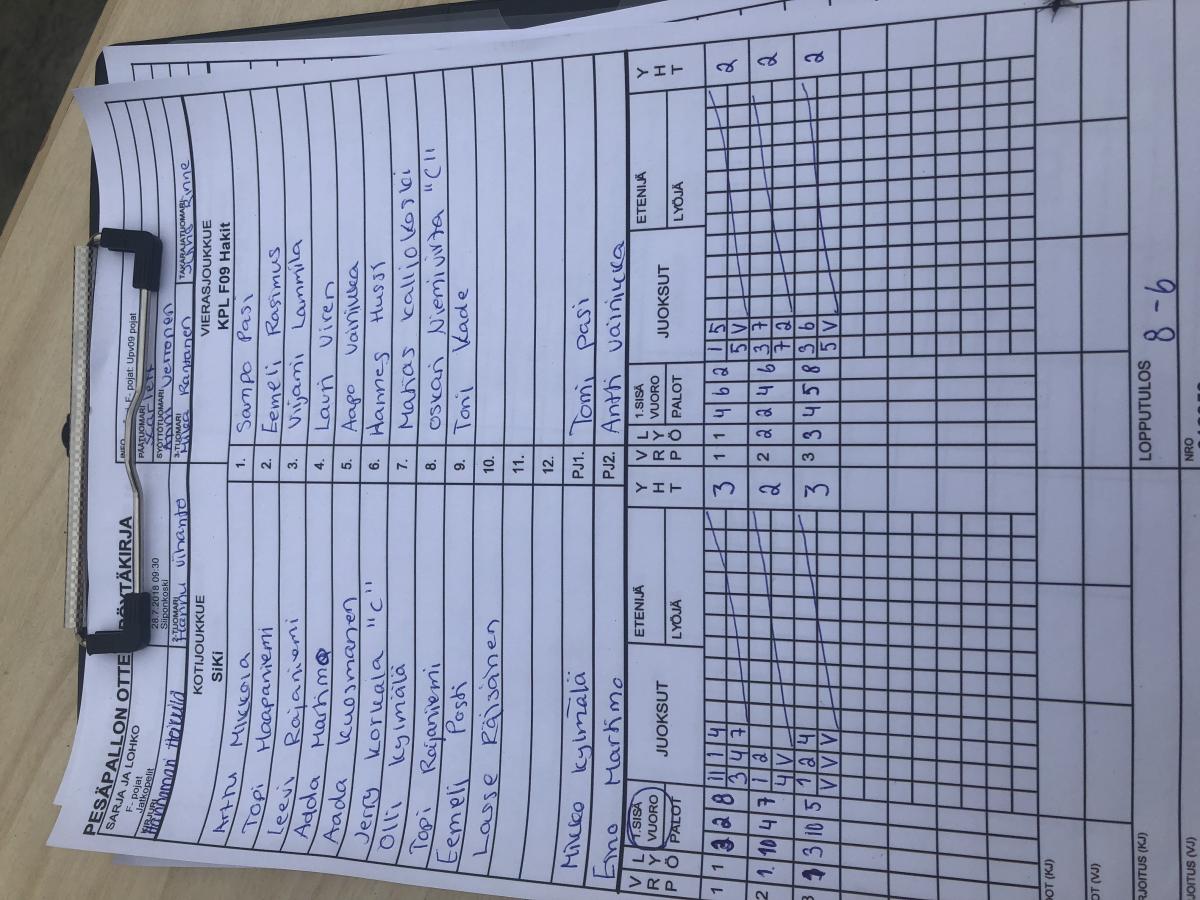 PESÄPALLON OTTE
ÖYTÄKIRJA
SARJA JA LOHKO
F- pojat
Jatkopelit
28.7.2018 09:30
Siiponkoski
INFO
F- pojat: Upv09 pojat
PÄÄTUOMARI
Scarlett
SYÖTTÖTUOMARI
KIRJURI
2-TUOMARI
Hannu Vihanto
3-TUOMARI
Mika Rantanen
TAKARAJATUOMARI
Rinne
KOTIJOUKKUE
SiKi
VIERASJOUKKUE
KPL F09 Hakit
Arttu Mikkola 1. Sampo Pasi
Topi Haapaniemi 2. Eemeli Rasimus
Leevi Rajaniemi 3. Viljami Lammila
Adda Martimo 4. Lauri Viren
Aada Kuosmanen 5. Aapo Vainikka
Jerry Korkala "C" 6. Hannes Hussi
Olli Kylmälä 7. Matias Kalliokoski
Topi Rajaniemi 8. Oskari Niemivirta "C"
Eemeli Posti 9. Toni Kade
Lasse Räisänen 10.
11.
12.
Mikko Kylmälä PJ1. Tomi Pasi
Eino Martimo PJ2. Antti Vainikka
V R P L Y Ö 1.SISÄ VUORO PALOT JUOKSUT ETENIJÄ LYÖJÄ Y H T V R P L Y Ö 1.SISÄ VUORO PALOT JUOKSUT ETENIJÄ LYÖJÄ Y H T
1 1 2 2 8 11 1 4 3 1 1 4 6 2 1 5 2
3 4 7 5 V
2 1. 10 4 7 1 2 2 2 2 2 4 6 3 7 2
4 V 7 2
3 3 10 5 1 2 4 3 3 3 4 5 8 3 6 2
V V V 5 V
OT (KJ)
OT (VJ)
LOPPUTULOS
8 - 6
RJOITUS (KJ)
JOITUS (VJ)
NRO